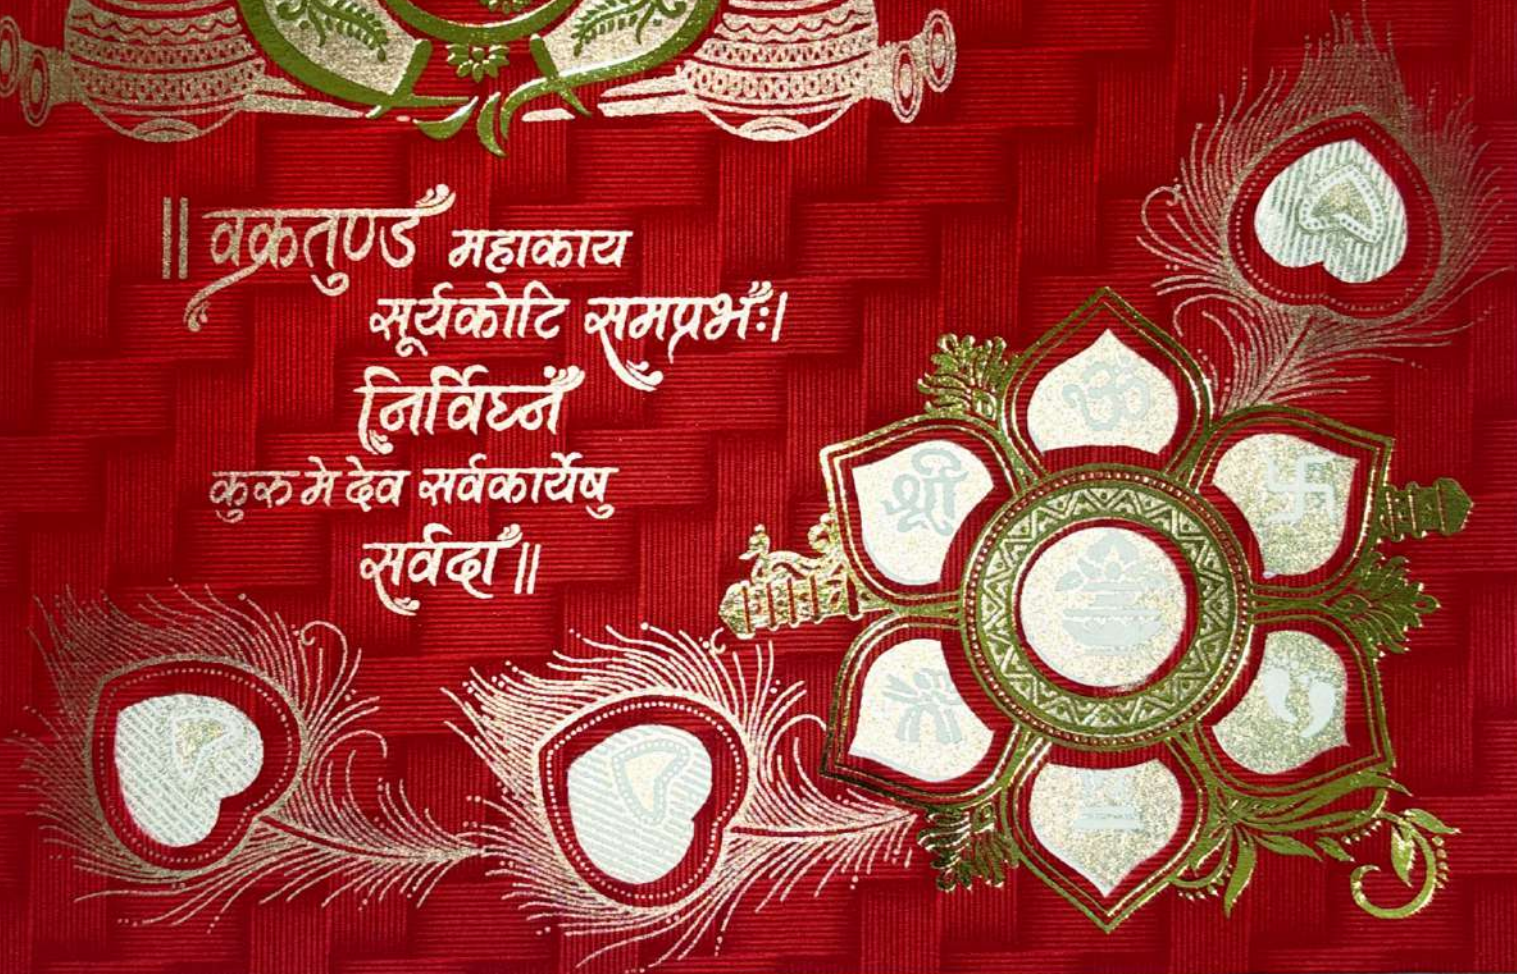 ॥ वक्रतुण्ड महाकाय
सूर्यकोटि समप्रभः।
निर्विघ्नं
कुरु मे देव सर्वकार्येषु
सर्वदा ॥
ॐ
श्री